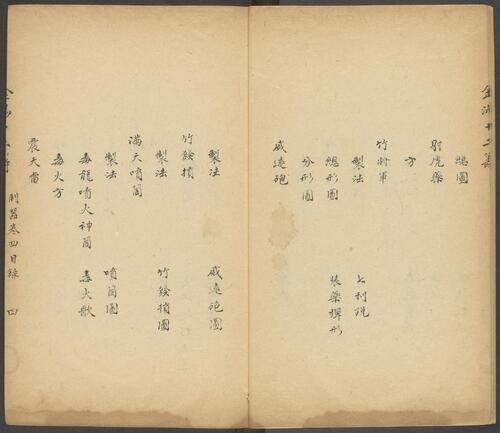 金湯十二籌
總圖
射虎藥
方
竹將軍
製法 利說
總形圖 裝藥彈形
分形圖
威遠砲
製法 威遠砲圖
竹
製法 竹 圖
滿天噴筒
製法 噴筒圖
毒龍噴火神筒 毒火歌
毒火方
震天雷
制器卷四目錄 四